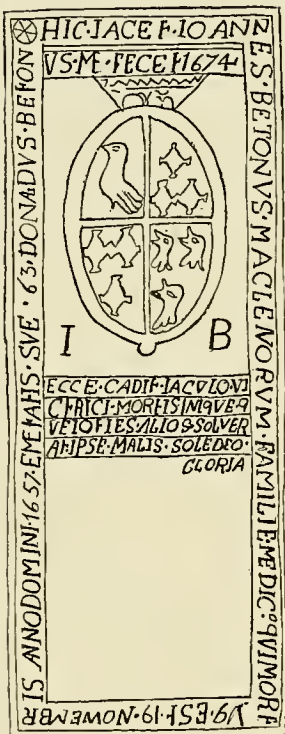 HIC·IACET·IOANN
ES·BETONVS·MACLENORVM·FAMILIE·MEDIC⁹·QVI MORT
V9·EST·19·NOWEMBR
IS ANNO DOMINI·1657·ET·ETATIS·SVE·63·DONALDVS·BETON
VS·ME·FECET 1674
I B
ECCE·CADIT·IACVLO·VI
CTRICI·MORTIS INIQVE·Q
VI TOTIES·ALIOS SOLVER
AT IPSE·MALIS·SOLE DEO·
GLORIA